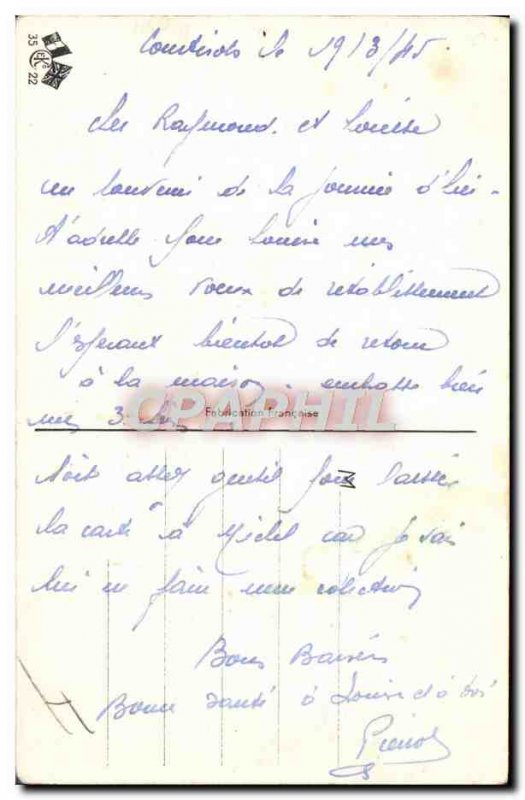 35 EKé 22
le 19/3/45
Raymond et Louise
un souvenir de la journée d'hier
J'adresse pour Louise mes
meilleurs voeux de rétablissement
l'espérant bientôt de retour
à la maison - embrasse bien
mes 3
CPAPHIL
Fabrication Française
Soit assez gentil pour laisser
la carte à Michel car je vais
lui en faire une collection
M
Bons Baisers
Bonne santé à Louise et à toi
Pierrot